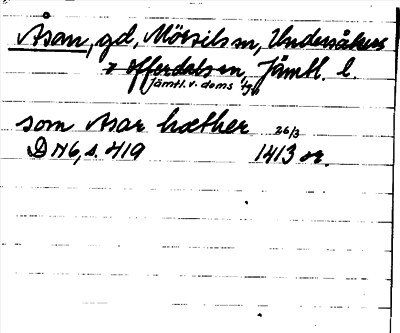 Åsan, gd, Mörsils sn, Undersåkers
o Offerdals sn, Jämtl. l.
Jämtl. v. doms 1/1 71
som Asar hæther 26/3
DN 6, s. 419 1413 or.